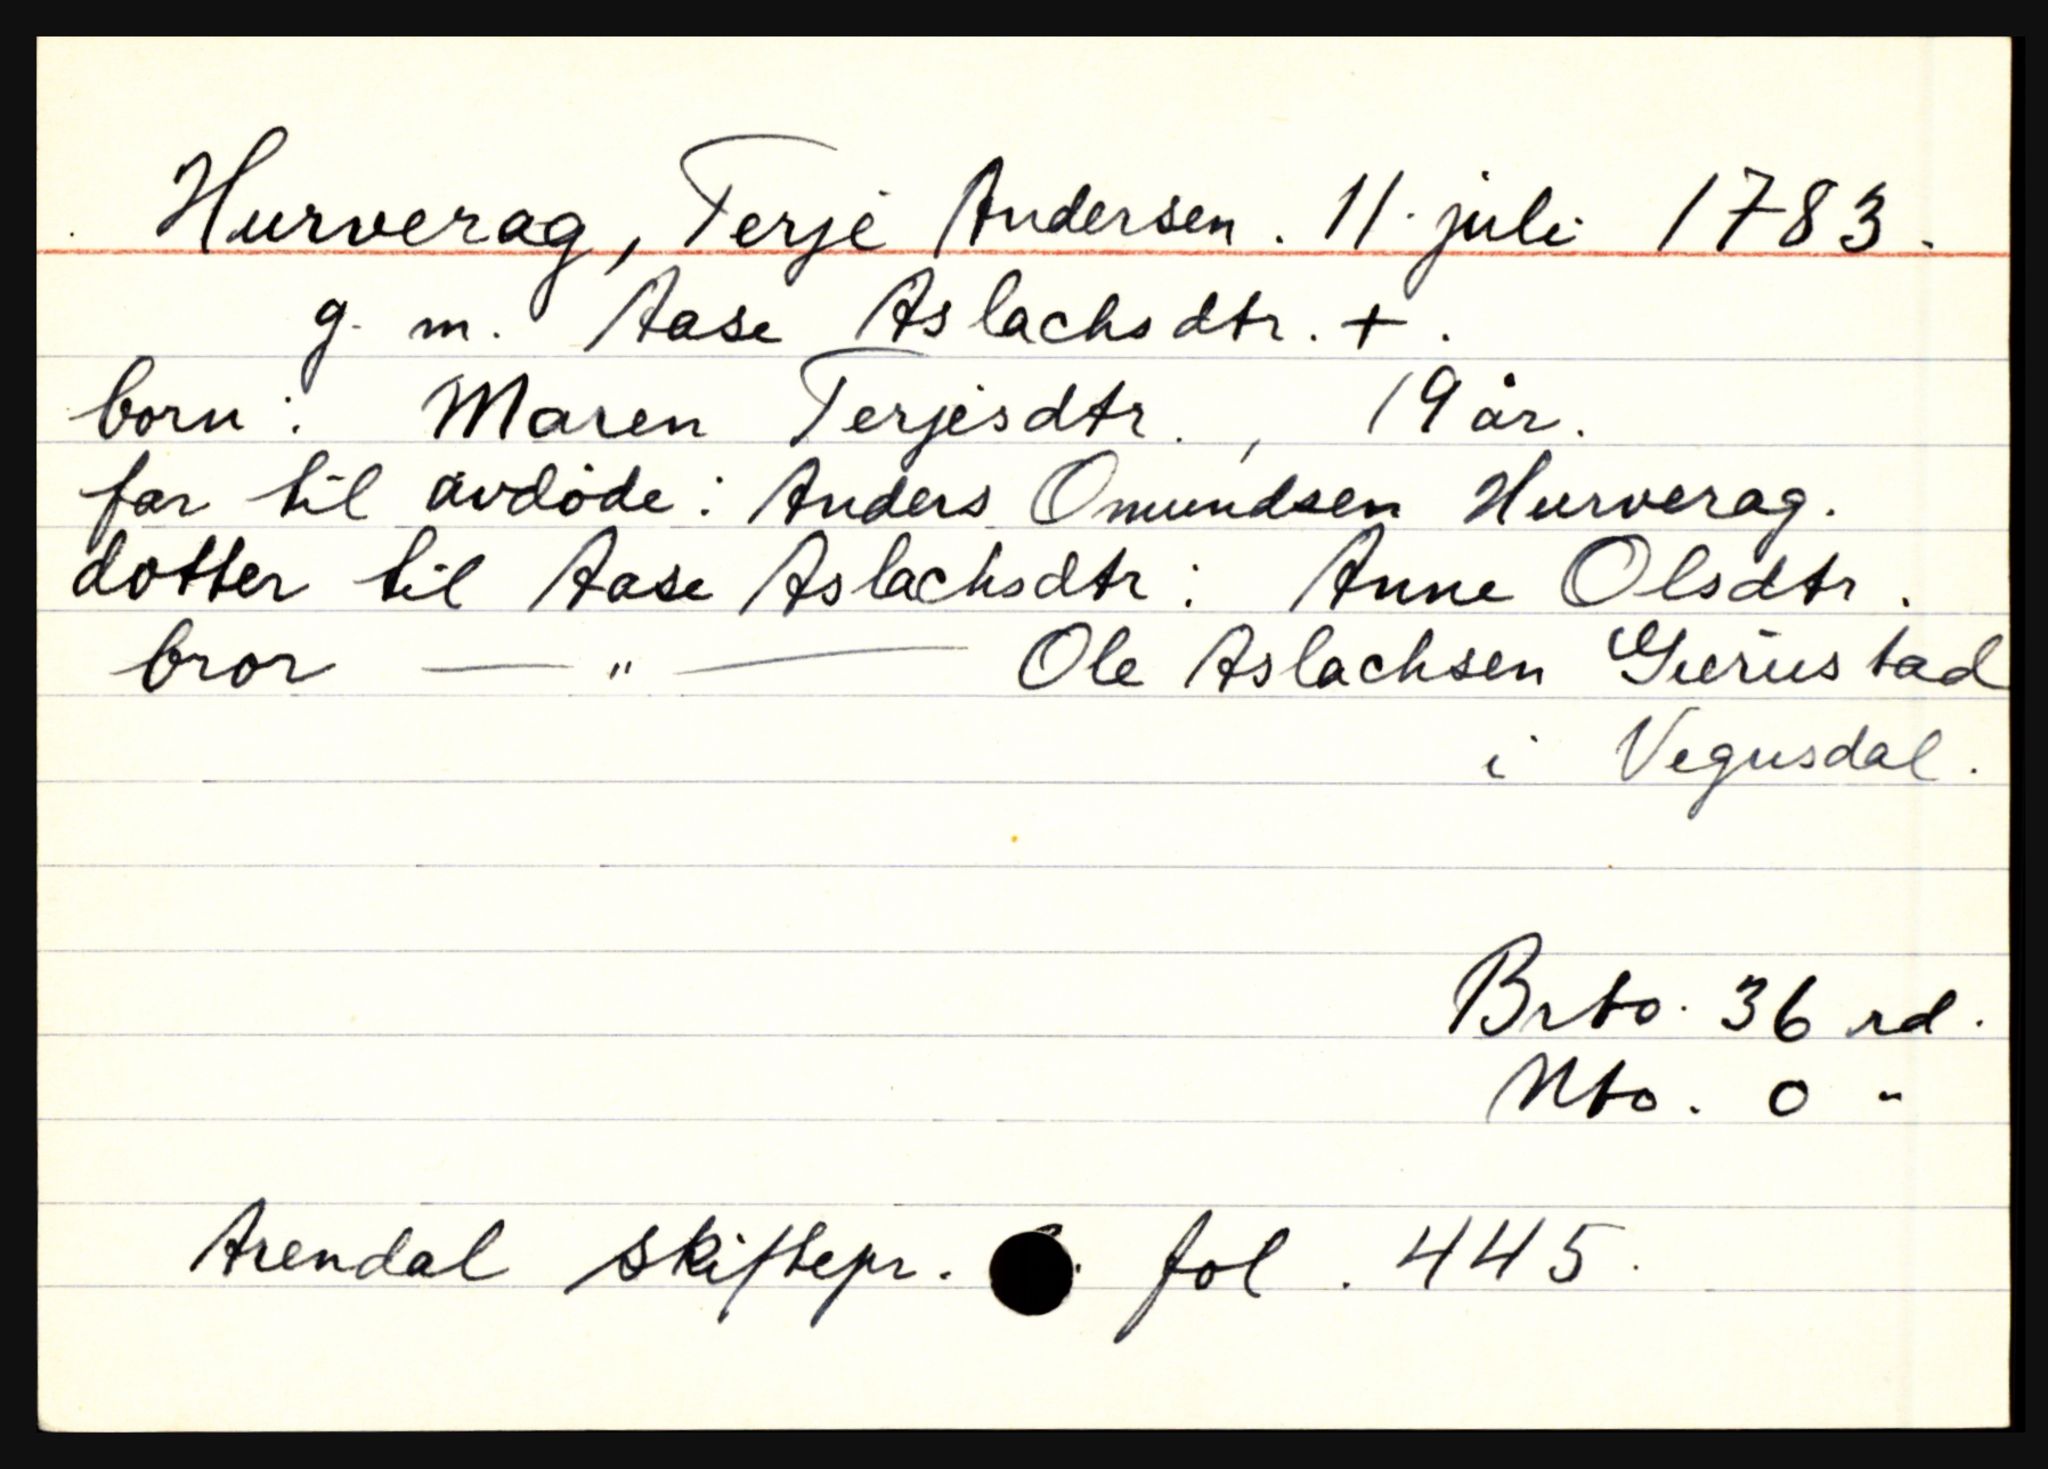 Hurverag, Terje Andersen. 11. juli 1783.
g. m. Aase Aslachsdtr. +.
born: Maren Terjesdtr., 19 år.
far til avdøde: Anders Omundsen Hurverag.
dotter til Aase Aslachsdtr: Anne Olsdtr.
bror — " — Ole Aslachsen Gierustad
i Vegusdal.
Brto. 36 rd.
Nto. 0 "
Arendal skiftepr. fol. 445.